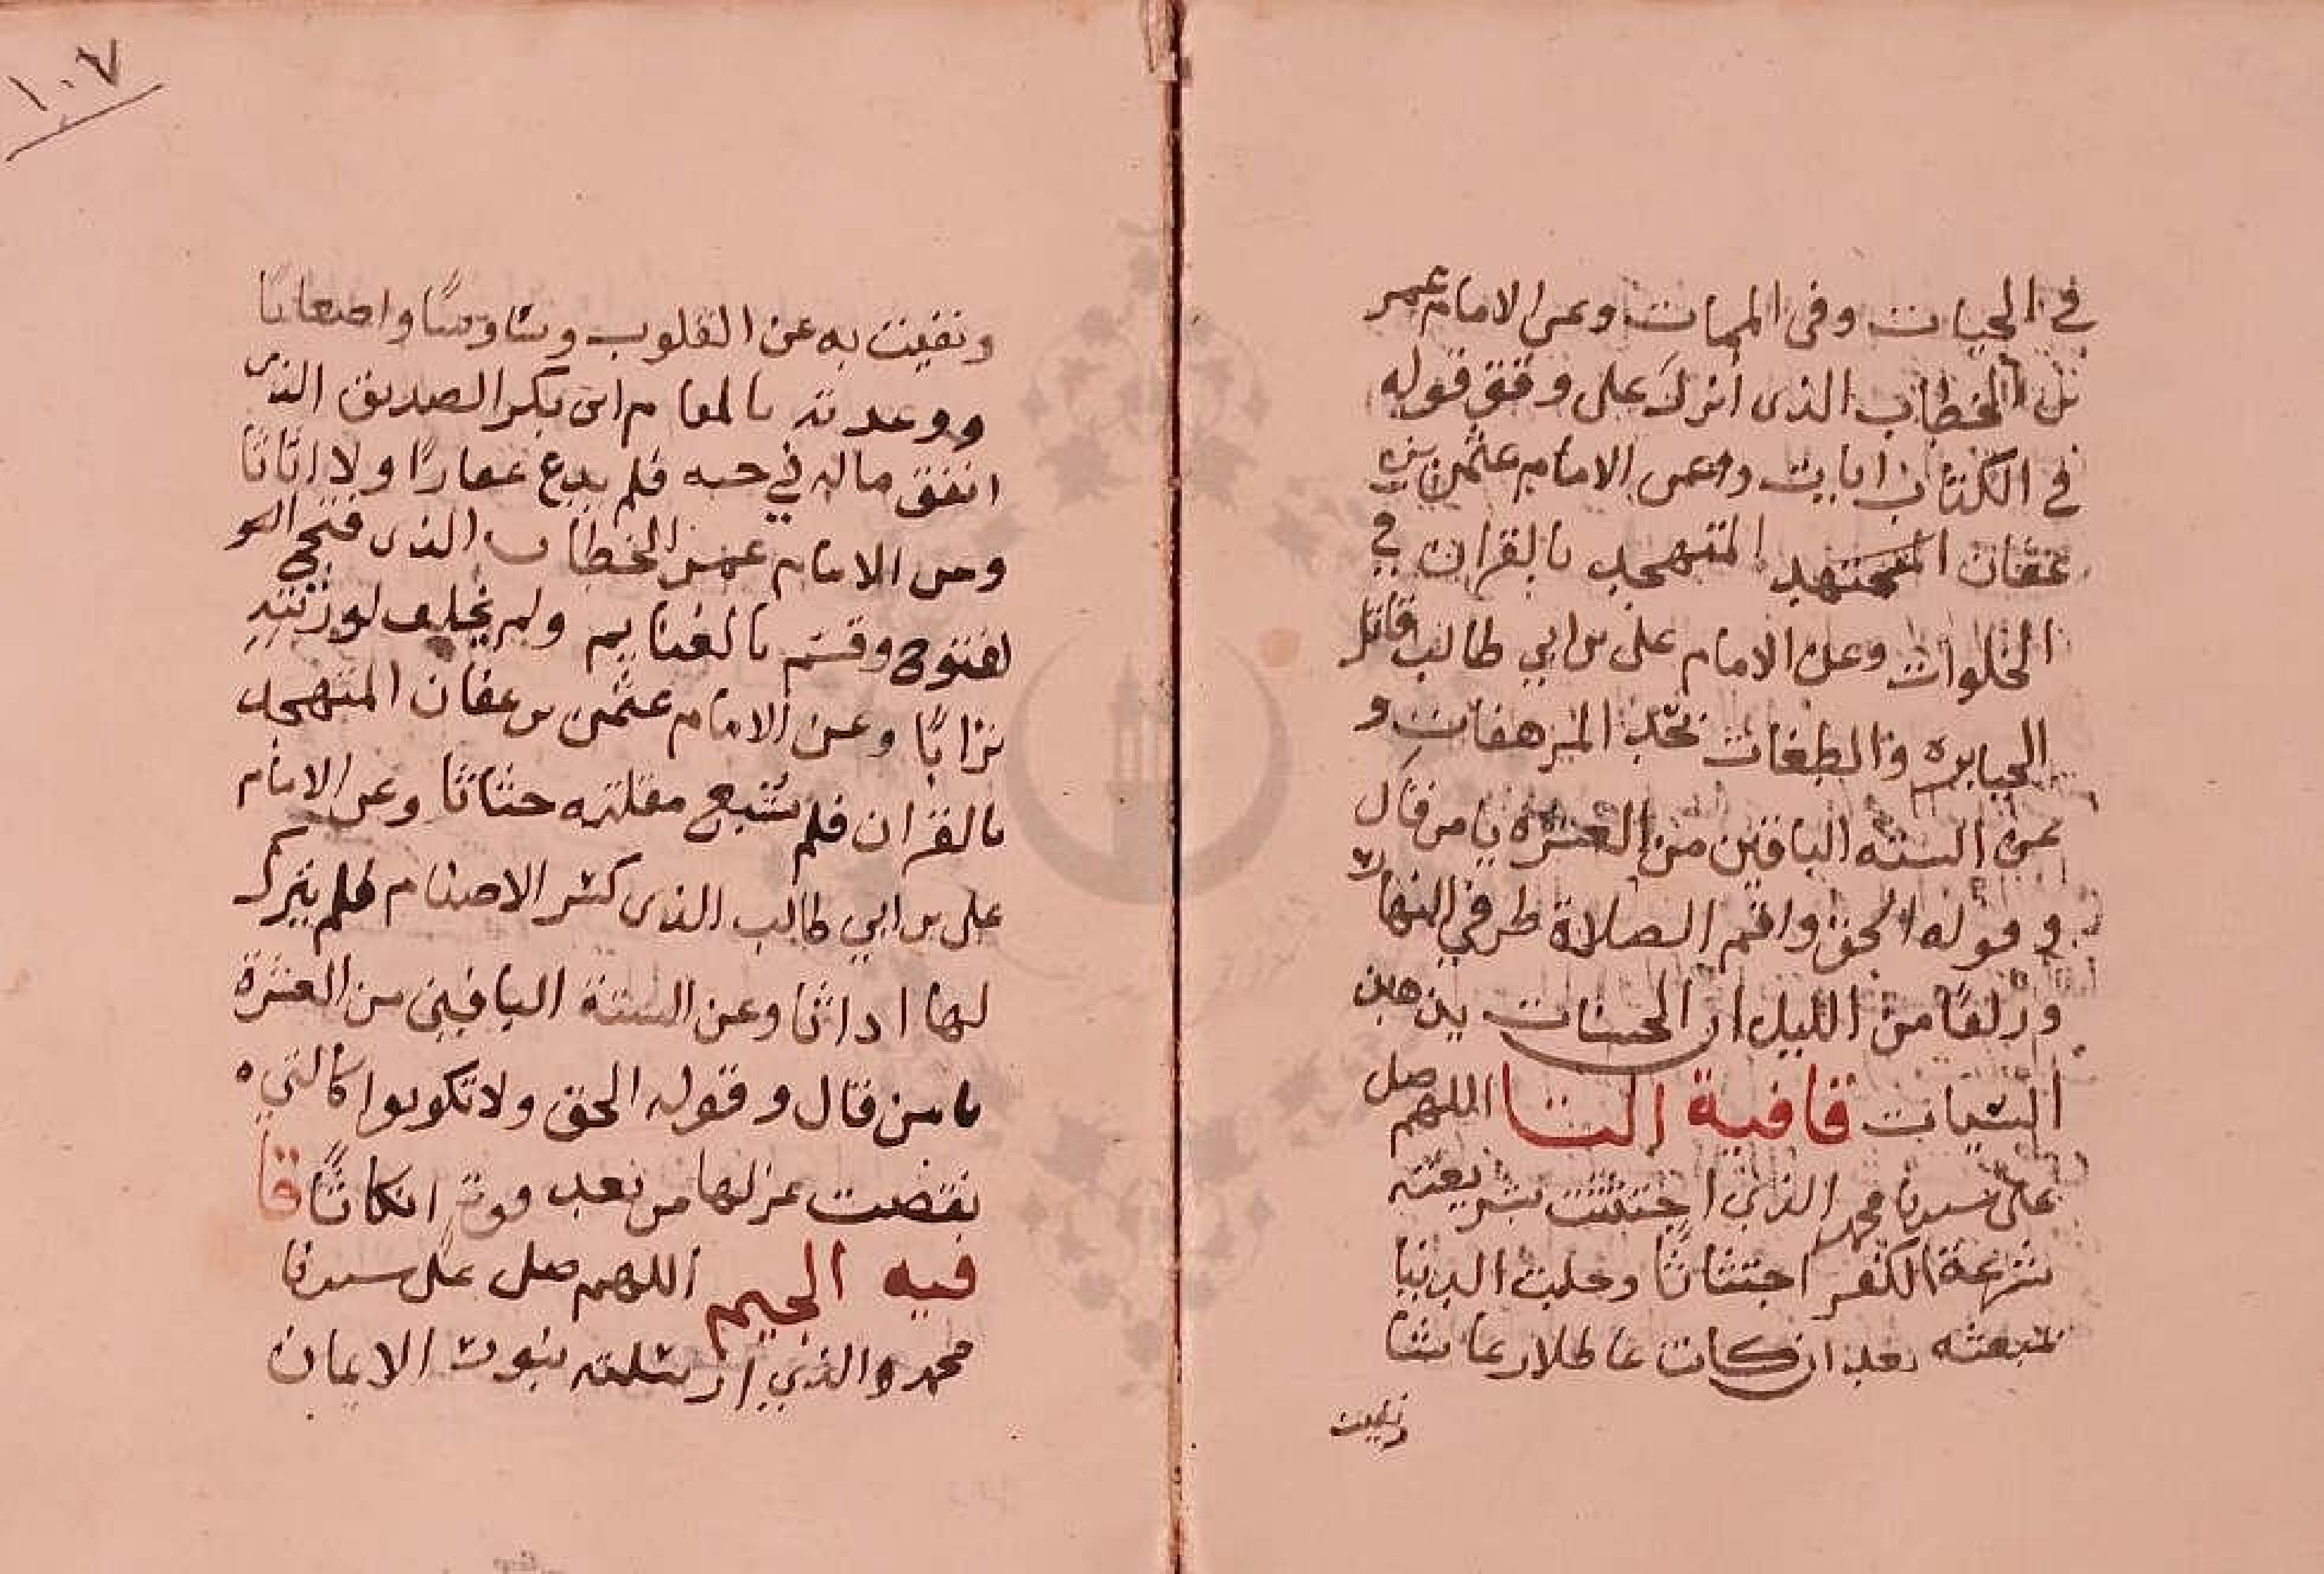 في الحيات وفى الممات وعن الامام عمر
بن الخطاب الذى انزلت على وفق قوله
في الكتاب ايات وعن الامام عثمن بن
عفان المجتهد المتهجد بالقران في
الخلوات وعن الامام على بن ابي طالب قاتل
الجبابره والطغات بحد المرهفات و
عن السته الباقين من العشرة يا من قال
و قوله الحق واقم الصلاة طرفي النهار
وزلفا من الليل ان الحسنات يذهبن
السيات قافية الثا اللهم صل
على سيدنا محمد الذي اجتثثت بشريعته
الكفر اجتثاثا وحليت الدنيا
بمبعثه بعد ان كانت عاطلا رعاثا
ونفيت
١٠٧
ونفيت به عن القلوب وساوسا واضغاثا
ووعدته بالمقام ابى بكر الصديق الذى
انفق ماله في حبه فلم يدع عقارا ولا اثاثا
وعن الامام عمر بن الخطاب الذى فتح الـ
لفتوح وقسم بالغنايم ولم يخلف لورثته
تراثا وعن الامام عثمن بن عفان المتهجد
بالقران فلم يشبع مقلته حثاثا وعن الامام
على بن ابي طالب الذى كسر الاصنام فلم يترك
لها اداثا وعن الستة الباقين من العشرة
يا من قال وقوله الحق ولا تكونوا كالتي
نقضت غزلها من بعد قوة انكاثا قا
فيه الجيم اللهم صل على سيدنا
محمد والذي ارسلته بثبوت الايمان